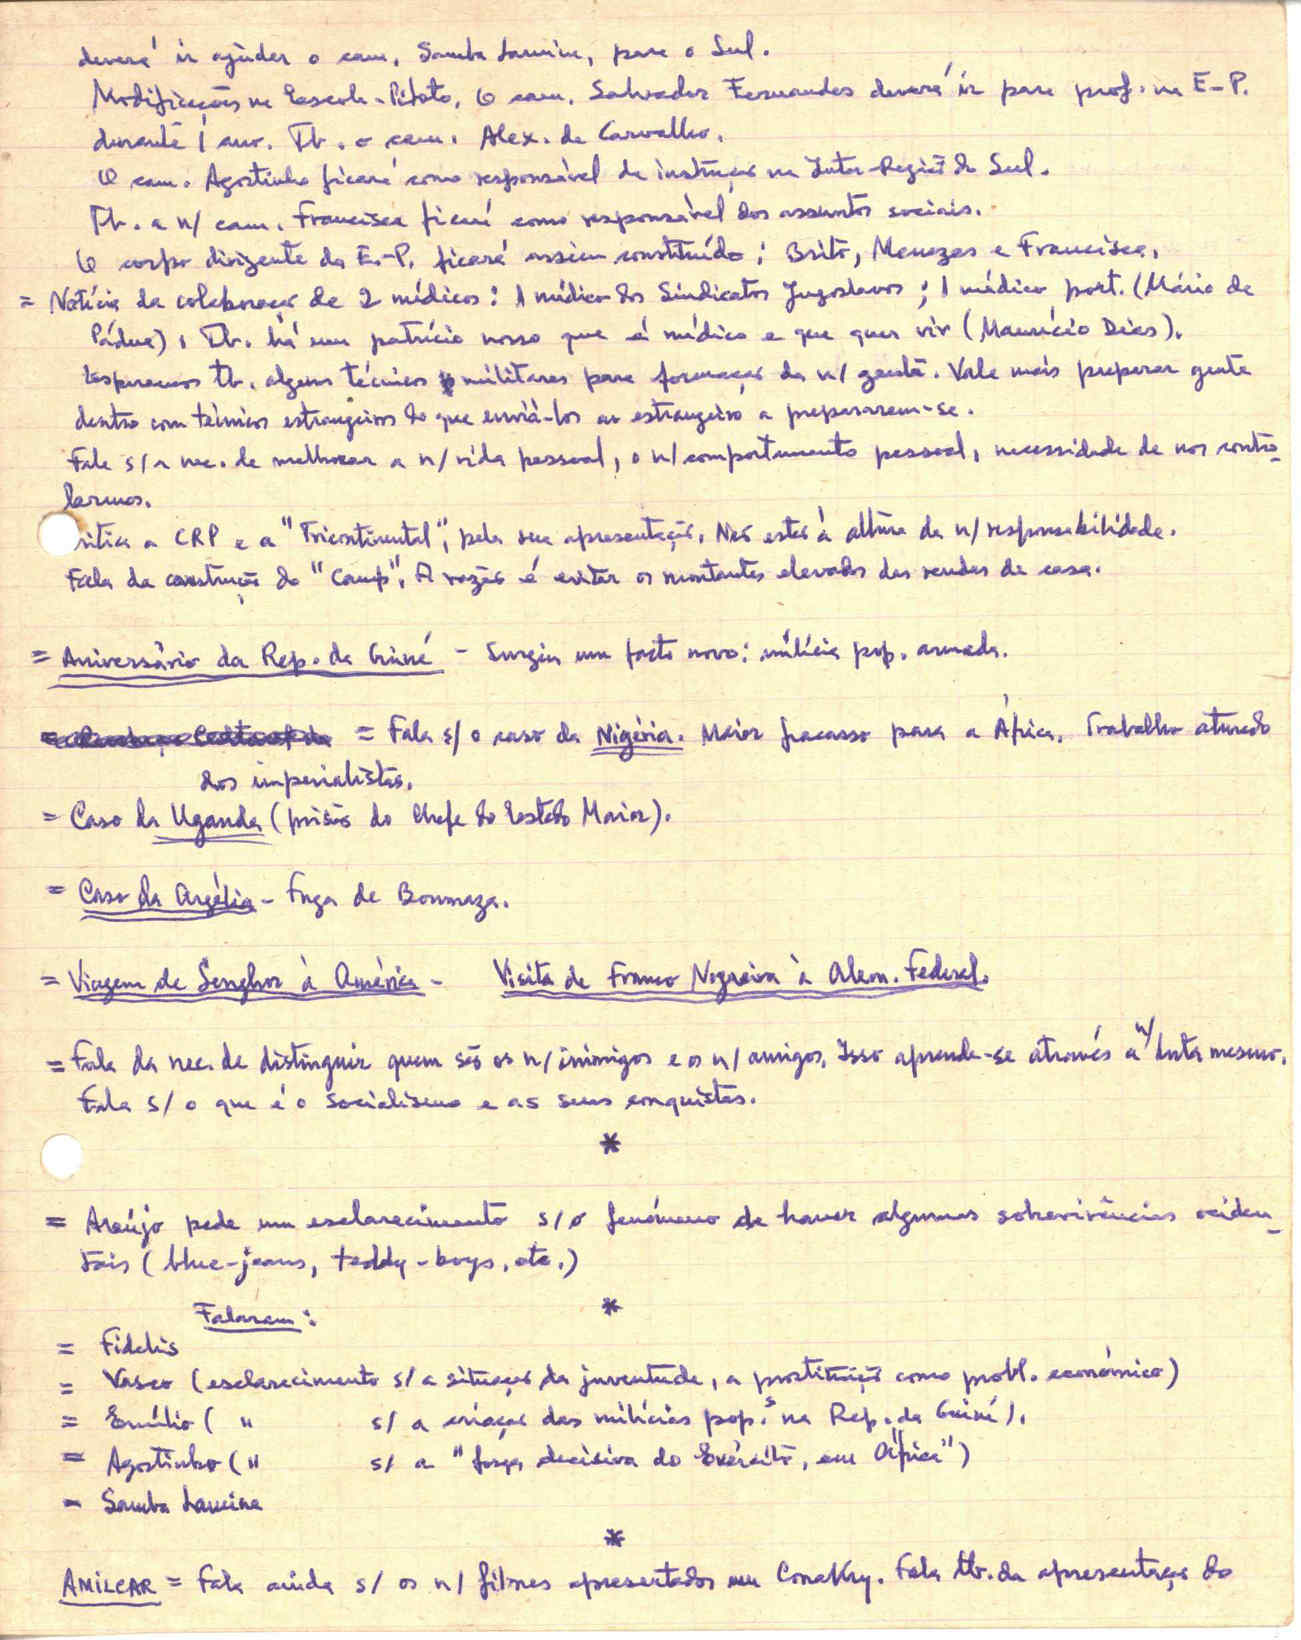 deverá ir ajudar o cam. Samba Lamine, para o Sul.
Modificações na Escola-Piloto. O cam. Salvador Fernandes deverá ir para prof. na E-P.
durante 1 ano. Tb. o cam. Alex. de Carvalho.
O cam. Agostinho ficará como responsável da instrução na Inter-Região do Sul.
Tb. a n/ cam. Francisca ficará como responsável dos assuntos sociais.
O corpo dirigente da E.-P. ficará assim constituído: Brito, Menezes e Francisca.
= Notícia da colaboração de 2 médicos: 1 médico dos Sindicatos Jugoslavos; 1 médico port. (Mário de
Pádua), Tb. há um patrício nosso que é médico e que quer vir (Maurício Dias).
Esperamos tb. alguns técnicos militares para formação da n/ gente. Vale mais preparar gente
dentro com técnicos estrangeiros do que enviá-los ao estrangeiro a prepararem-se.
Fala s/ a nec. de melhorar a n/ vida pessoal, o n/ comportamento pessoal, necessidade de nos contro-
larmos.
Critica a CRP e a "Tricontinental", pela sua apresentação. Não estar à altura da n/ responsabilidade.
Fala da construção do "Camp". A razão é evitar os montantes elevados das rendas de casa.
= Aniversário da Rep. da Guiné - Surgiu um facto novo: milícia pop. armada.
= Fala s/ o caso da Nigéria. Maior fracasso para a África. Trabalho aturado
dos imperialistas.
= Caso da Uganda (prisão do Chefe do Estado Maior).
= Caso da Argélia - Fuga de Boumaza.
= Viagem de Senghor à América - Visita de Franco Nogueira à Alem. Federal.
= Fala da nec. de distinguir quem são os n/ inimigos e os n/ amigos. Isso aprende-se através a n/ luta mesmo.
Fala s/ o que é o socialismo e as suas conquistas.
*
= Araújo pede um esclarecimento s/ o fenómeno de haver algumas sobrevivências ociden-
tais (blue-jeans, teddy-boys, etc.)
*
Falaram:
= Fidelis
= Vasco (esclarecimento s/ a situação da juventude, a prostituição como probl. económico)
= Emílio ( " s/ a criação das milícias pop.s na Rep. da Guiné).
= Agostinho ( " s/ a "força decisiva do Exército, em África")
= Samba Lamine
*
AMILCAR = Fala ainda s/ os n/ filmes apresentados em Conakry. Fala tb. da apresentação do